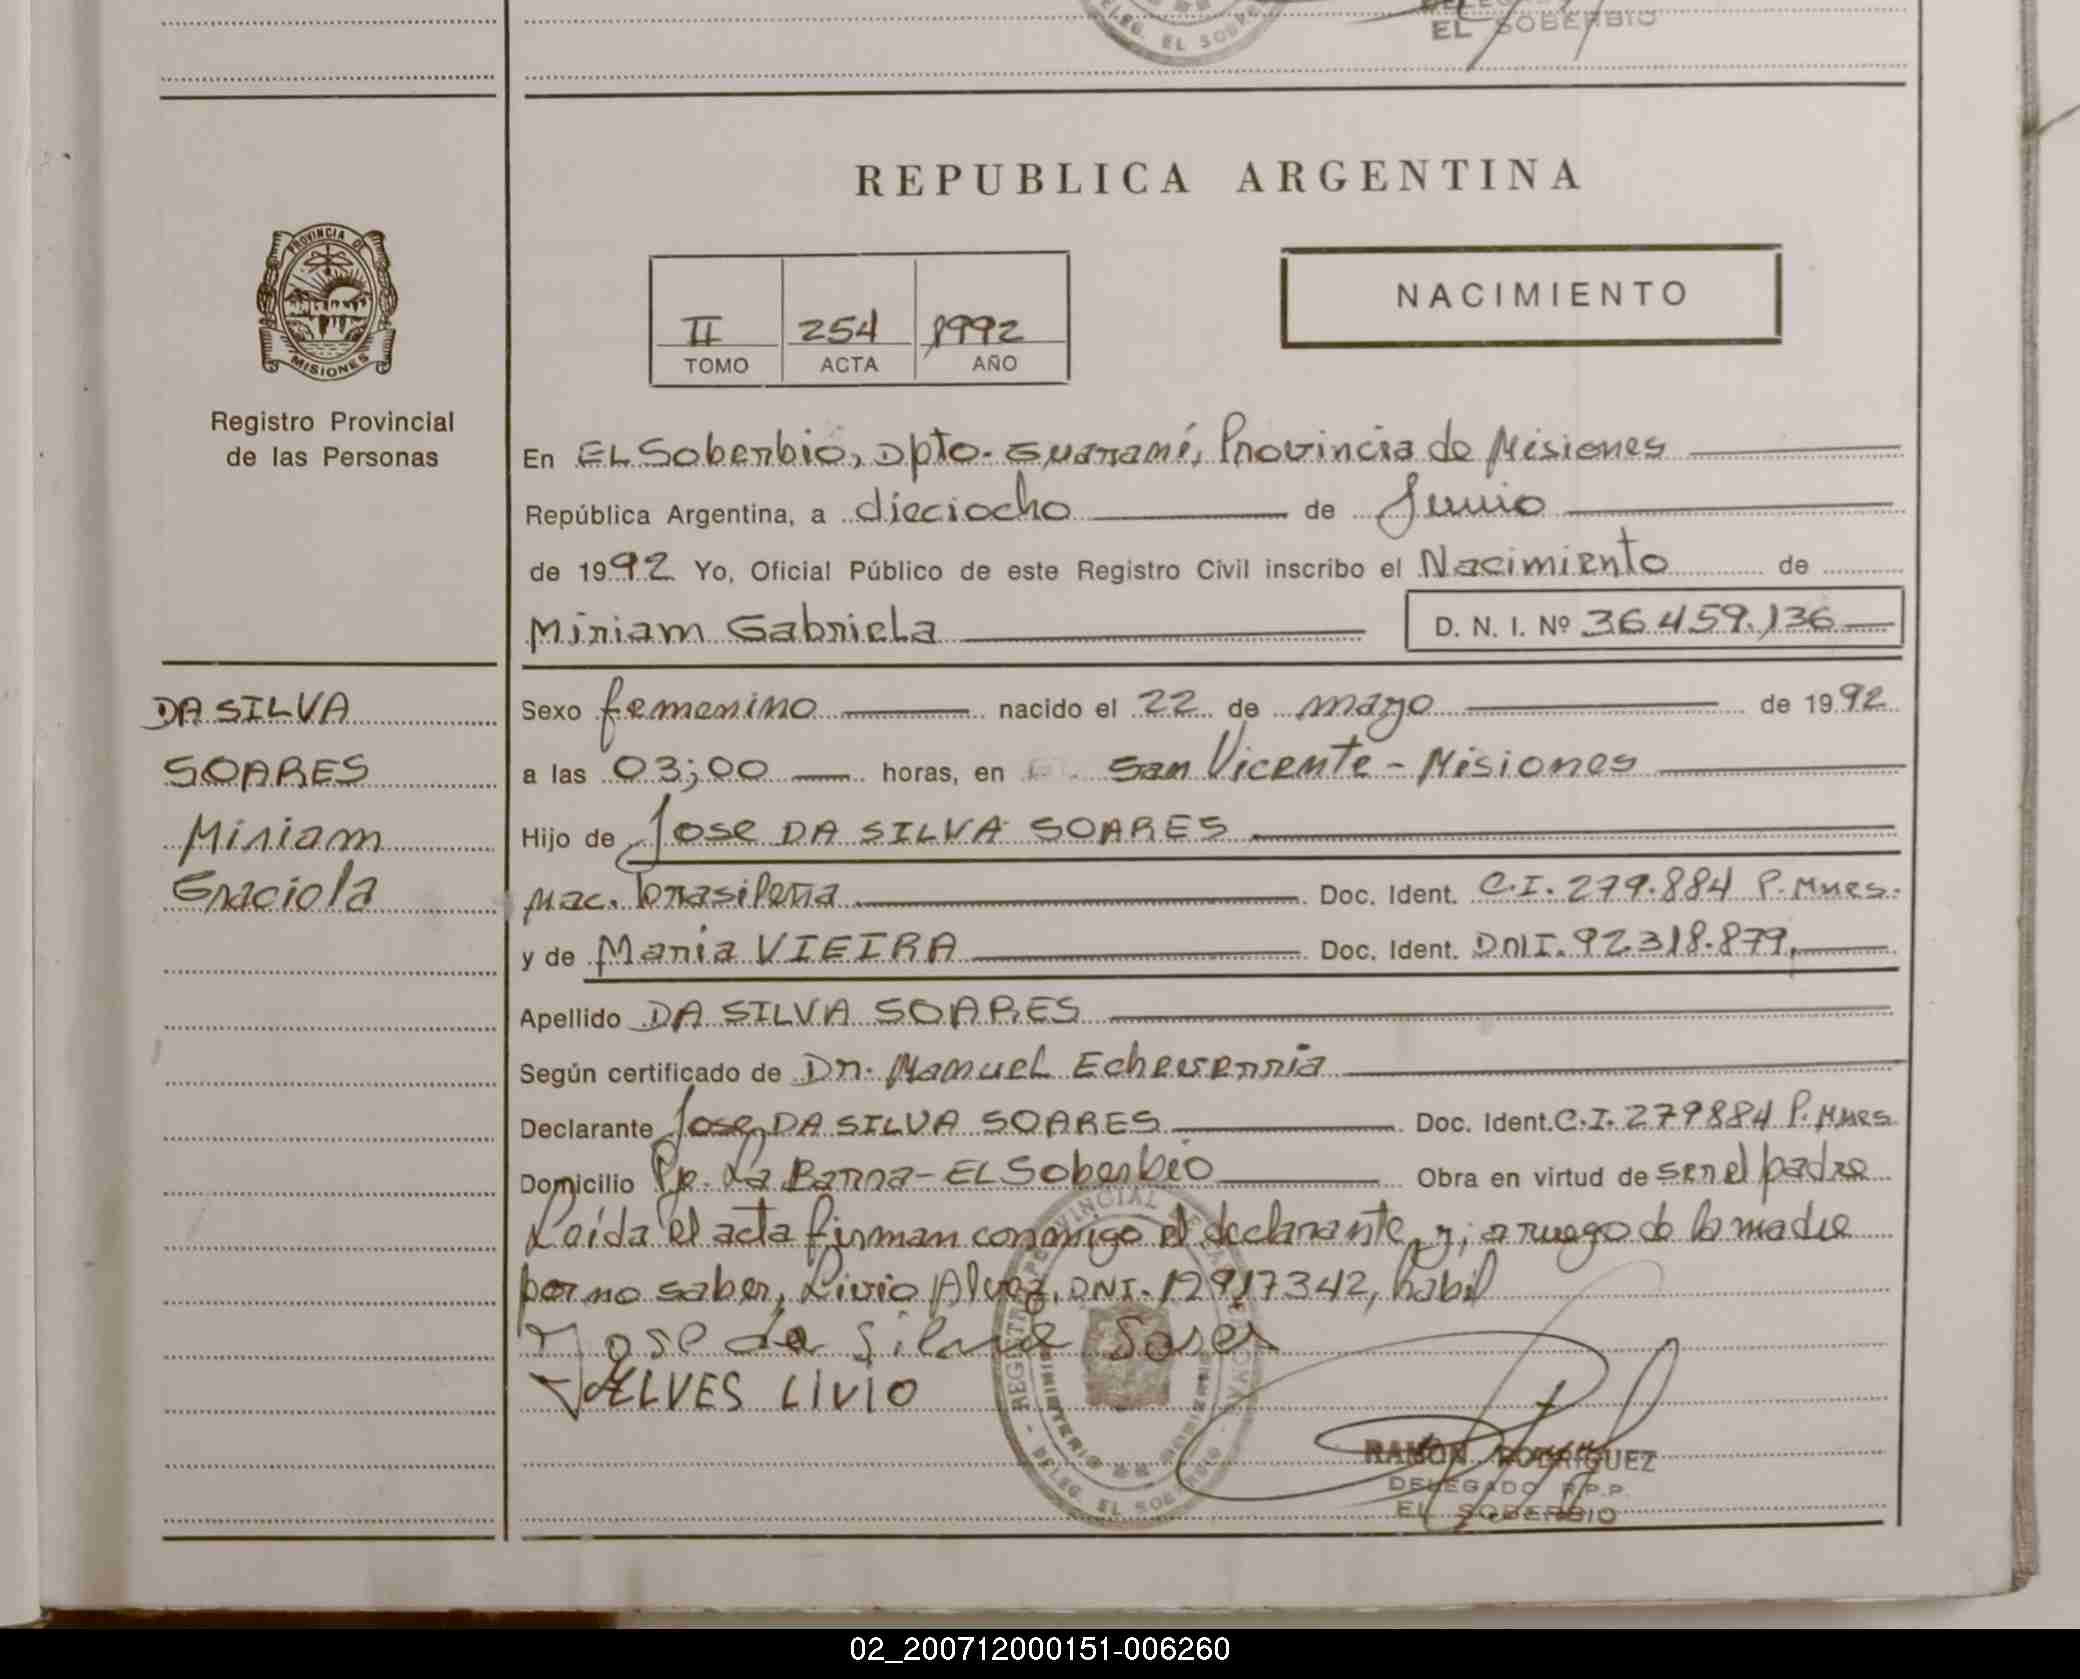 EL SOBERBIO
REPUBLICA ARGENTINA
PROVINCIA DE
MISIONES
Registro Provincial
de las Personas
II 254 1992
TOMO ACTA AÑO
NACIMIENTO
En EL Soberbio, Dpto. Guaraní, Provincia de Misiones
República Argentina, a dieciocho de Junio
de 1992 Yo, Oficial Público de este Registro Civil inscribo el Nacimiento de
Miriam Gabriela D. N. I. Nº 36.459.136
DA SILVA
SOARES
Miriam
Graciela
Sexo femenino nacido el 22 de mayo de 1992
a las 03;00 horas, en San Vicente - Misiones
Hijo de Jose DA SILVA SOARES
Nac. brasileña Doc. Ident. C.I. 279.884 P. Mnes.
y de Maria VIEIRA Doc. Ident. DNI. 92.318.879,
Apellido DA SILVA SOARES
Según certificado de Dr. Manuel Echeverria
Declarante Jose DA SILVA SOARES Doc. Ident. C.I. 279884 P. Mnes
Domicilio Pje. La Barra - EL Soberbio Obra en virtud de ser el padre
Leída el acta firman conmigo el declarante y, a ruego de la madre
por no saber, Livio Alvez, DNI. 12917342, habil
Jose da Silva Soares
ALVES LIVIO
REGISTRO PROVINCIAL DE LAS PERSONAS
MINISTERIO DE GOBIERNO
DELEG. EL SOBERBIO
RAMON RODRIGUEZ
DELEGADO R.P.P.
EL SOBERBIO
02_200712000151-006260